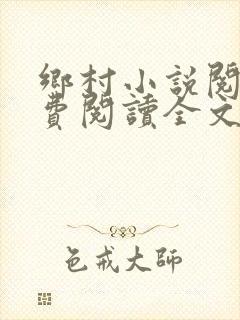 鄉村小說閱
費閱讀全文
色戒大師